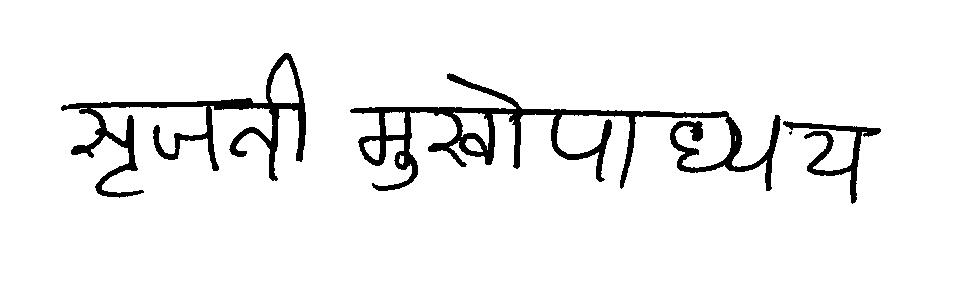 सृजती मुखोपाध्यय